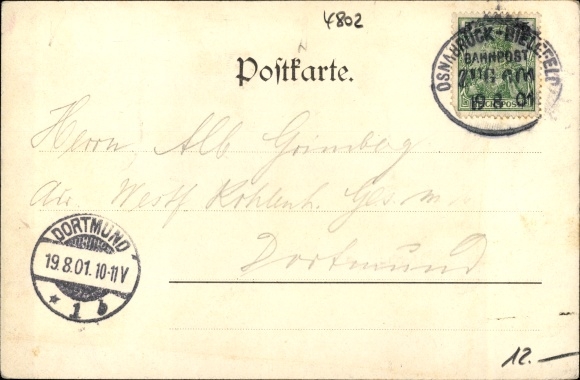 4802
OSNABRÜCK-BIELEFELD
BAHNPOST
ZUG 601
19 8 01
Postkarte.
Herrn, Alb Grimberg
Westf Kohlenh. Ges. m
Dortmund
DORTMUND
19.8.01.10-11V
* 1 b
12.-